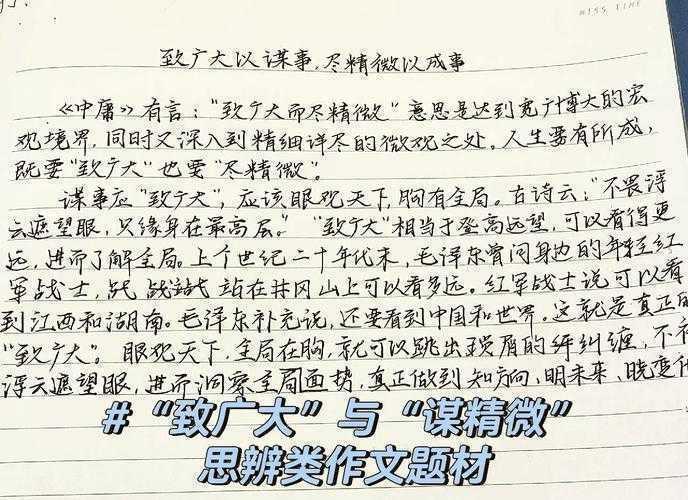 MISS TIME
致广大以谋事,尽精微以成事
《中庸》有言:“致广大而尽精微”意思是达到宽广博大的宏
观境界,同时又深入到精细详尽的微观之处。人生要有所成,
既要“致广大”也要“尽精微”。
谋事应“致广大”,应该眼观天下,胸有全局。古诗云:“不畏浮
云遮望眼,只缘身在最高层。”“致广大”相当于登高远望,可以看得更
远,进而了解全局。上个世纪二十年代末,毛泽东曾问身边的年轻红
军战士,战 站在井冈山上可以看多远。红军战士说可以看
到江西和湖南。毛泽东补充说,还要看到中国和世界。这就是真正的
“致广大”。眼观天下,全局在胸,就可以跳出琐屑的纠缠,不
浮云遮望眼,进而洞察全局面势,真正做到知方向、明未来、晓变
#“致广大”与“谋精微”
思辨类作文题材